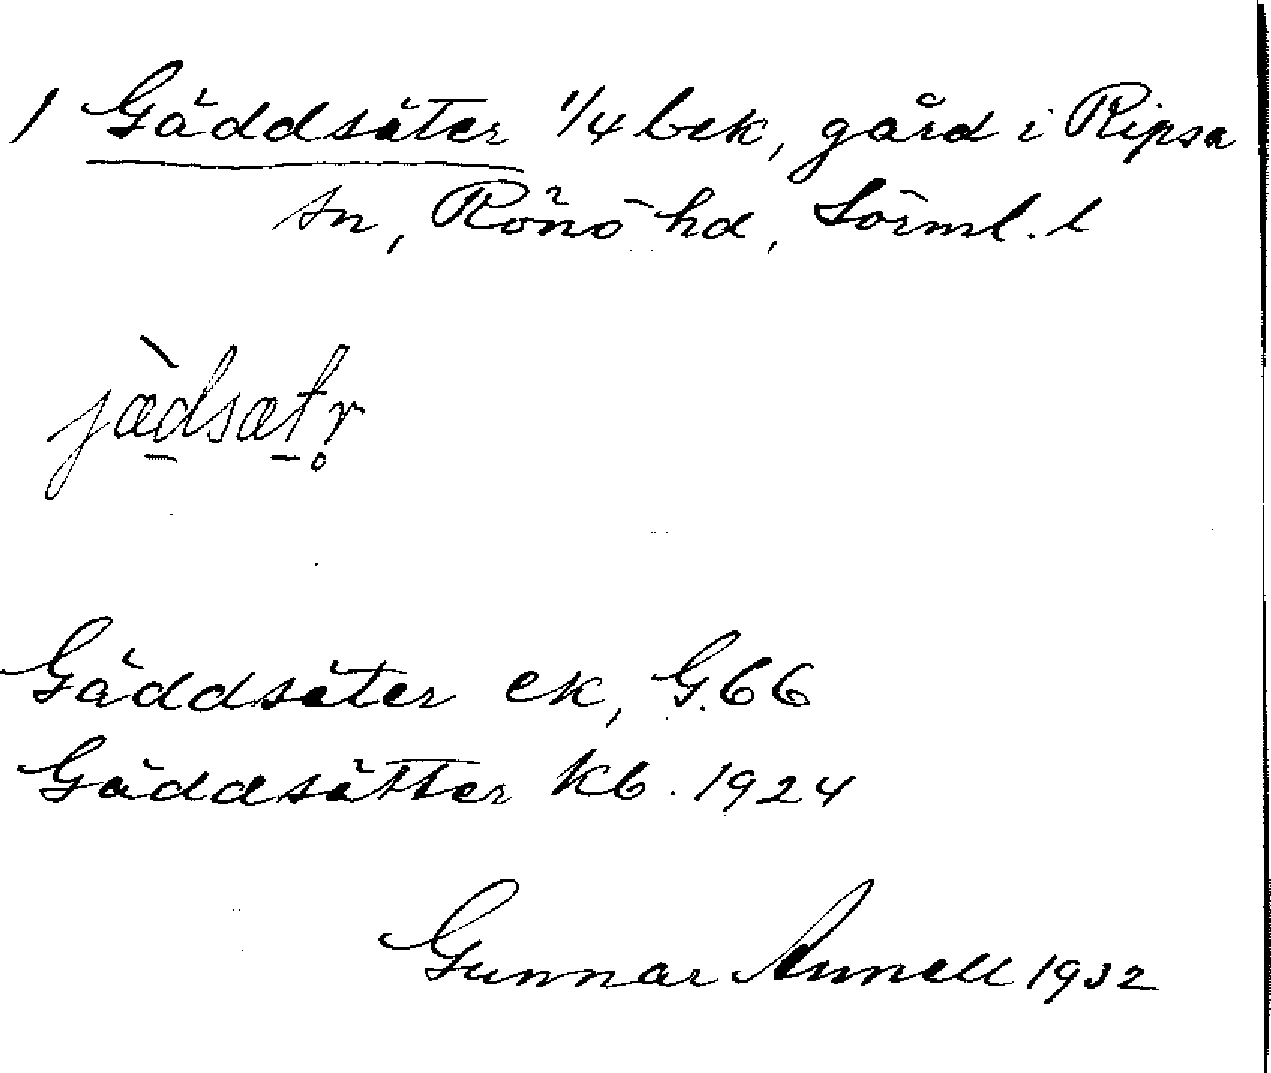 1 Gäddsäter 1/4 bek, gård i Ripsa
sn, Rönö hd, Sörml. l
jæ̀d̲sæt̲r̥
Gäddsäter ek, G.66
Gäddsätter kb. 1924
Gunnar Annell 1932